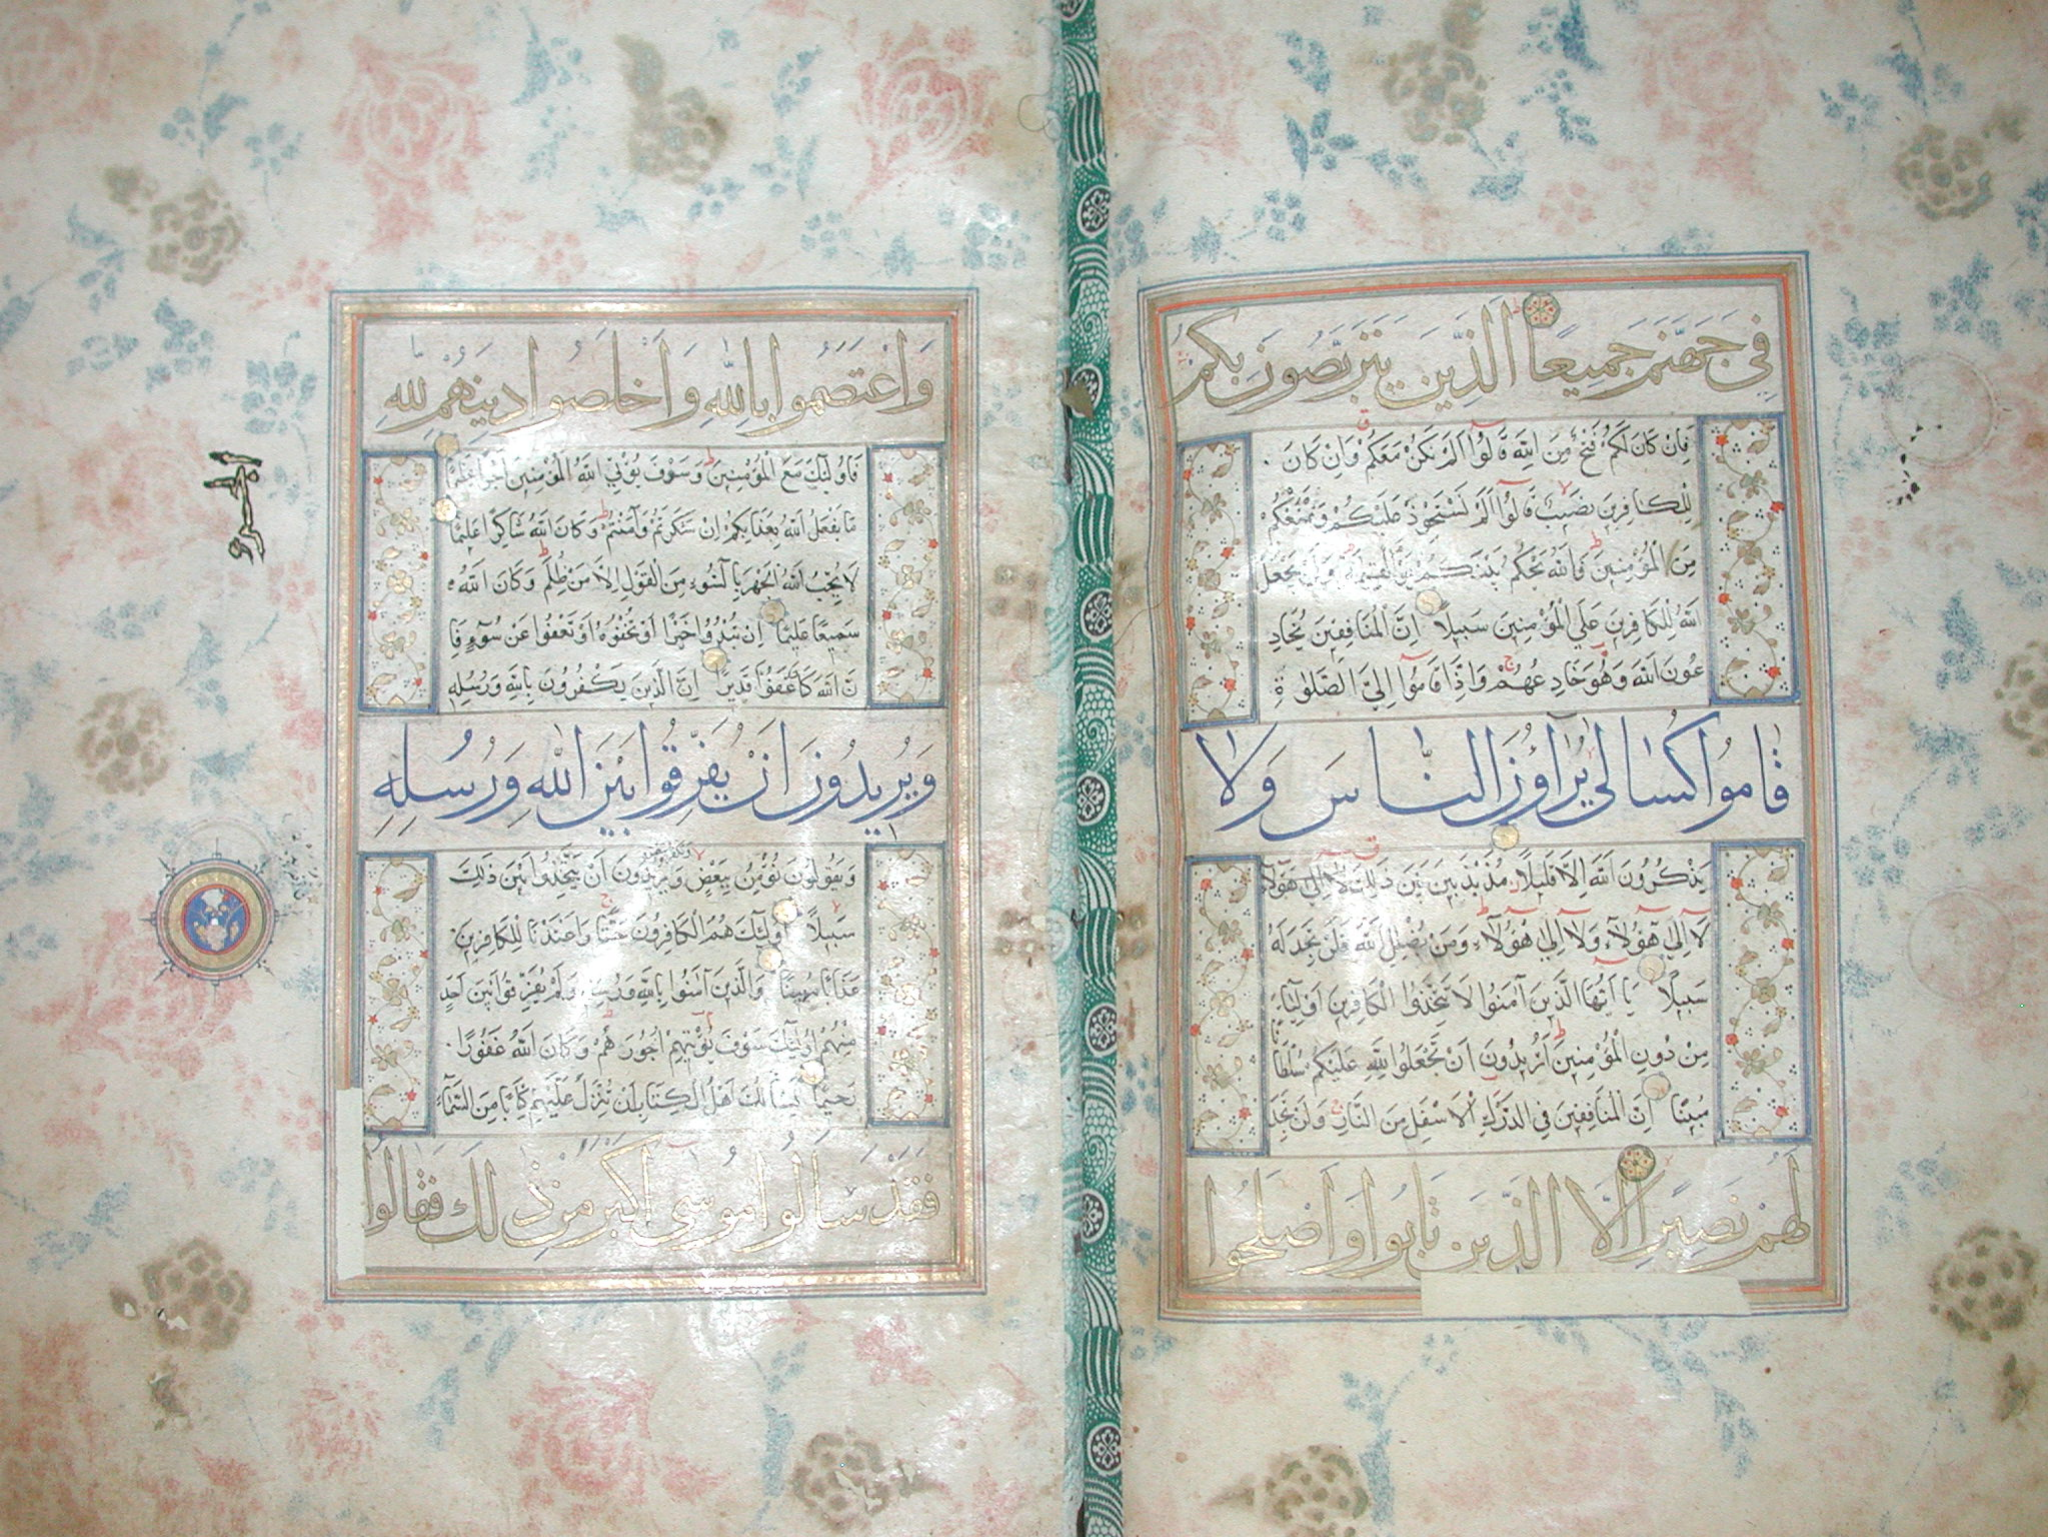 فِي جَهَنَّمَ جَمِيعًا الَّذِينَ يَتَرَبَّصُونَ بِكُمْ
فَاِنْ كَانَ لَكُمْ فَتْحٌ مِنَ اللّٰهِ قَالُوا اَلَمْ نَكُنْ مَعَكُمْ وَاِنْ كَانَ
لِلْكَافِرِينَ نَصِيبٌ قَالُوا اَلَمْ نَسْتَحْوِذْ عَلَيْكُمْ وَنَمْنَعْكُمْ
مِنَ الْمُؤْمِنِينَ فَاللّٰهُ يَحْكُمُ بَيْنَكُمْ يَوْمَ الْقِيٰمَةِ وَلَنْ يَجْعَلَ
اللّٰهُ لِلْكَافِرِينَ عَلَى الْمُؤْمِنِينَ سَبِيلًا اِنَّ الْمُنَافِقِينَ يُخَادِ
عُونَ اللّٰهَ وَهُوَ خَادِعُهُمْ وَاِذَا قَامُوا اِلَى الصَّلٰوةِ
قَامُوا كُسَالٰى يُرَآؤُنَ النَّاسَ وَلَا
يَذْكُرُونَ اللّٰهَ اِلَّا قَلِيلًا مُذَبْذَبِينَ بَيْنَ ذٰلِكَ لَا اِلٰى هٰؤُلَا
لَا اِلٰى هٰؤُلَاءِ وَلَا اِلٰى هٰؤُلَاءِ وَمَنْ يُضْلِلِ اللّٰهُ فَلَنْ تَجِدَ لَهُ
سَبِيلًا يَا اَيُّهَا الَّذِينَ آمَنُوا لَا تَتَّخِذُوا الْكَافِرِينَ اَوْلِيَاءَ
مِنْ دُونِ الْمُؤْمِنِينَ اَتُرِيدُونَ اَنْ تَجْعَلُوا لِلّٰهِ عَلَيْكُمْ سُلْطَانًا
مُبِينًا اِنَّ الْمُنَافِقِينَ فِي الدَّرْكِ الْاَسْفَلِ مِنَ النَّارِ وَلَنْ تَجِدَ
لَهُمْ نَصِيرًا اِلَّا الَّذِينَ تَابُوا وَاَصْلَحُوا
وَاعْتَصَمُوا بِاللّٰهِ وَاَخْلَصُوا دِينَهُمْ لِلّٰهِ
فَاُولٰئِكَ مَعَ الْمُؤْمِنِينَ وَسَوْفَ يُؤْتِي اللّٰهُ الْمُؤْمِنِينَ اَجْرًا عَظِيمًا
مَا يَفْعَلُ اللّٰهُ بِعَذَابِكُمْ اِنْ شَكَرْتُمْ وَآمَنْتُمْ وَكَانَ اللّٰهُ شَاكِرًا عَلِيمًا
لَا يُحِبُّ اللّٰهُ الْجَهْرَ بِالسُّوءِ مِنَ الْقَوْلِ اِلَّا مَنْ ظُلِمَ وَكَانَ اللّٰهُ
سَمِيعًا عَلِيمًا اِنْ تُبْدُوا خَيْرًا اَوْ تُخْفُوهُ اَوْ تَعْفُوا عَنْ سُوءٍ فَاِ
نَّ اللّٰهَ كَانَ عَفُوًّا قَدِيرًا اِنَّ الَّذِينَ يَكْفُرُونَ بِاللّٰهِ وَرُسُلِهِ
وَيُرِيدُونَ اَنْ يُفَرِّقُوا بَيْنَ اللّٰهِ وَرُسُلِهِ
وَيَقُولُونَ نُؤْمِنُ بِبَعْضٍ وَيُرِيدُونَ اَنْ يَتَّخِذُوا بَيْنَ ذٰلِكَ
سَبِيلًا اُولٰئِكَ هُمُ الْكَافِرُونَ حَقًّا وَاَعْتَدْنَا لِلْكَافِرِينَ
عَذَابًا مُهِينًا وَالَّذِينَ آمَنُوا بِاللّٰهِ وَرُسُلِهِ وَلَمْ يُفَرِّقُوا بَيْنَ اَحَدٍ
مِنْهُمْ اُولٰئِكَ سَوْفَ يُؤْتِيهِمْ اُجُورَهُمْ وَكَانَ اللّٰهُ غَفُورًا
رَحِيمًا يَسْاَلُكَ اَهْلُ الْكِتَابِ اَنْ تُنَزِّلَ عَلَيْهِمْ كِتَابًا مِنَ السَّمَاءِ
فَقَدْ سَاَلُوا مُوسٰى اَكْبَرَ مِنْ ذٰلِكَ فَقَالُوا